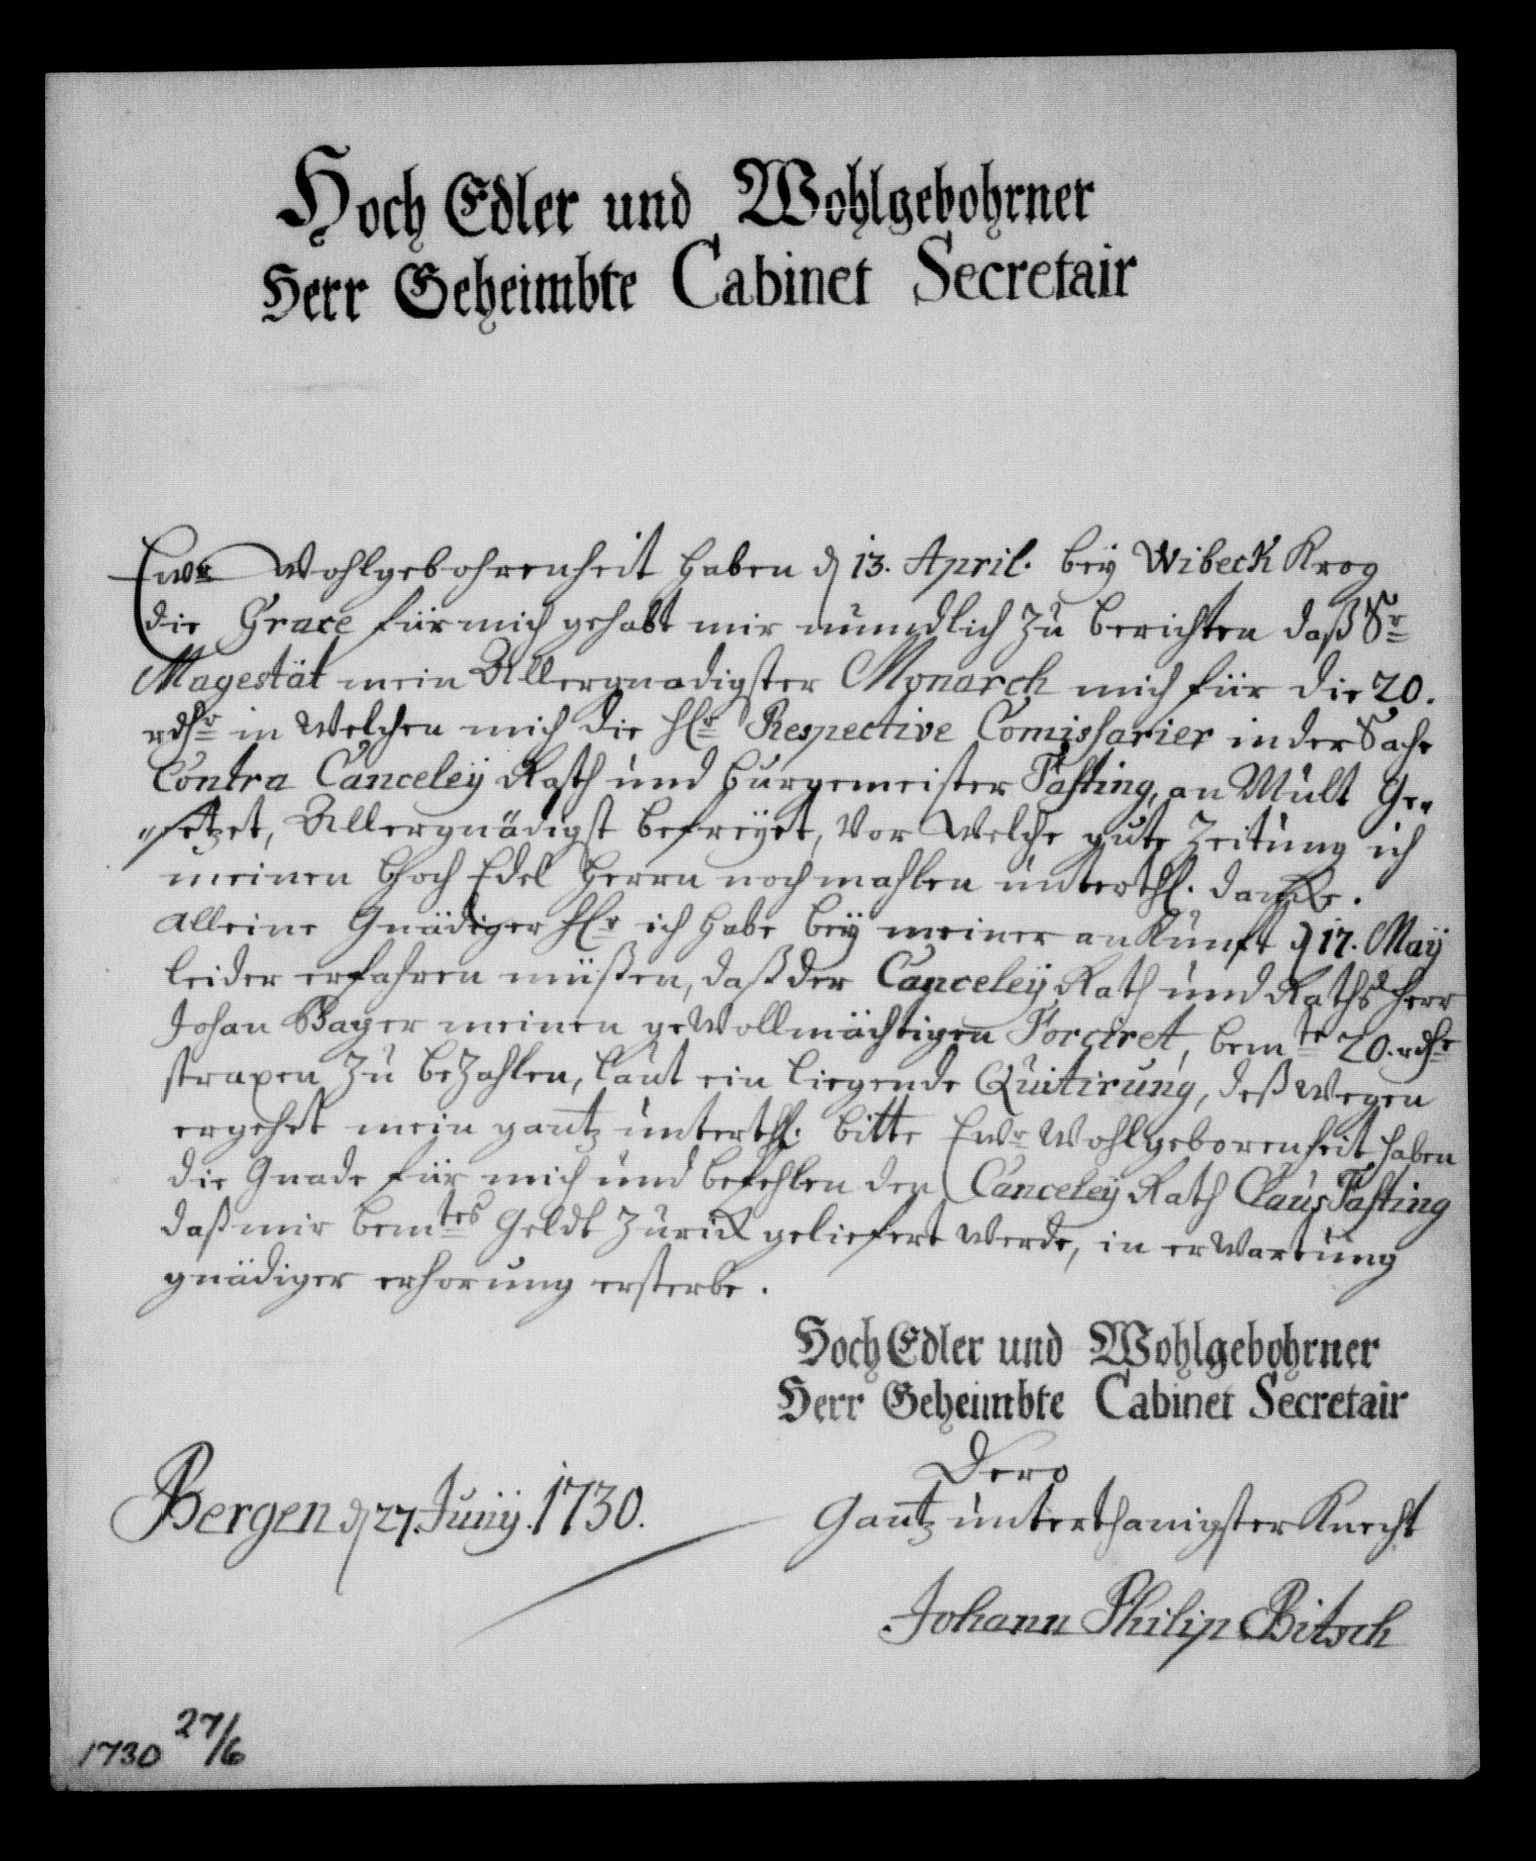 Hoch Edler und Wohlgebohrner
Herr Geheimbte Cabinet Secretair
Ewr Wohlgebohrenheit haben d 13. April. bey Wibeck Krog
die Grace für mich gehabt mir mundlich zu berichten daß Sr
Magestät mein Allergnadigster Monarch mich für die 20.
rdhr in welchen mich die Hr Respective Comissarier in der Sache
Contra Canceley Rath und burgemeister Fasting, an Mult Ge„
„setzet, Allergnädigst befreyet, Vor Welche gute Zeitung ich
meinen Hoch Edel Herrn nochmahlen unterthl. dancke.
Alleine Gnädiger Hr ich habe bey meiner ankunft d 17. Maÿ
leider erfahren müßen, daß der Canceleÿ Rath und Raths herr
Johan Bager meinen geVollmächtigen Forciret, bemte 20. rdhr
strapen zu beZahlen, laut ein liegende Quitirung, deß wegen
ergehet mein gantz unterthl. bitte Ewr Wohlgeborenheit haben
die Gnade für mich und befehlen den Canceleÿ Rath Claus Fasting
daß mir bemtes Geldt zurück geliefert werde, in erwartung
gnädiger erhorung ersterbe.
Hoch Edler und Wohlgebohrner
Herr Geheimbte Cabinet Secretair
Dero
Gantz unterthanigster Knecht
Bergen d 27. Junÿ. 1730.
Johann Philip Bitsch
1730 27/6